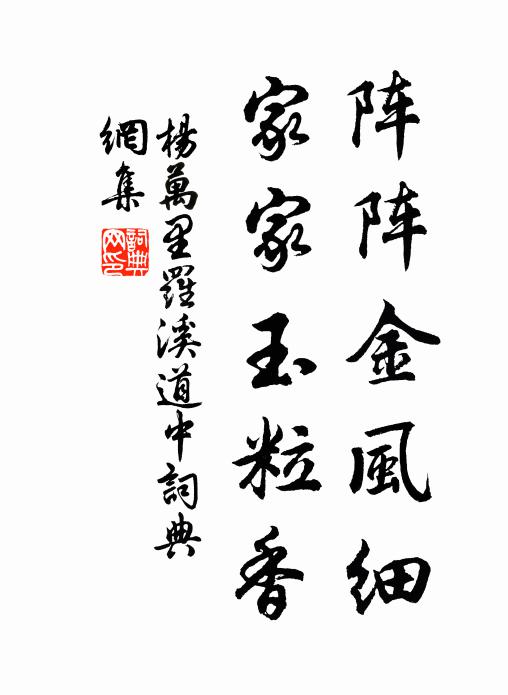 阵阵金風细
家家玉粒香
楊萬里羅溪道中詞典
網集
詞典網印